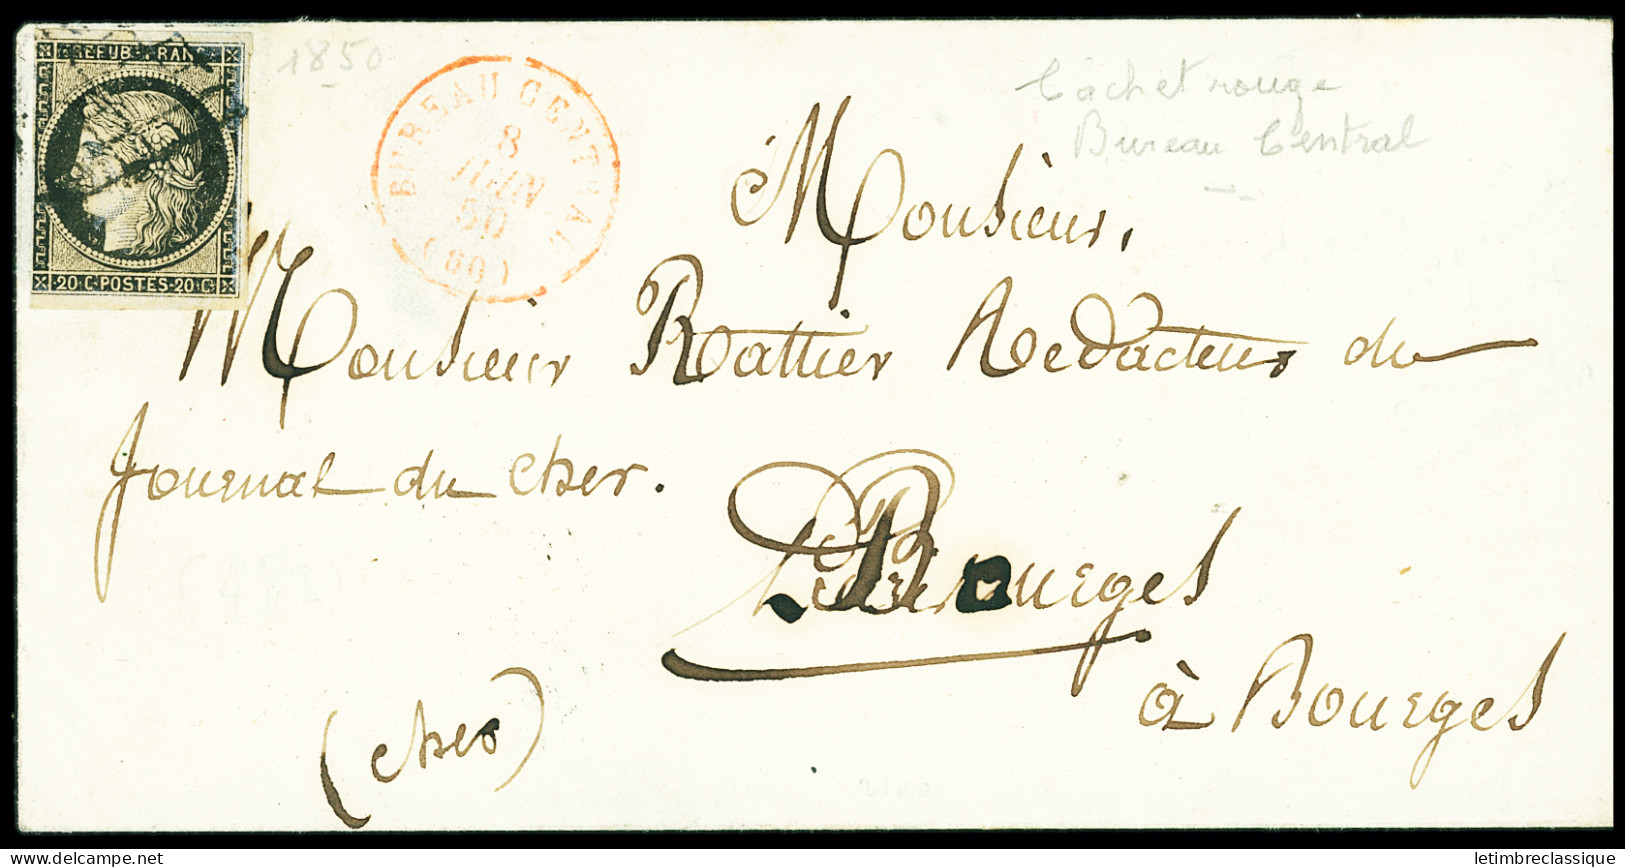 REPUB. FRANC
20 C POSTES 20 C
1850
BUREAU CENTRAL
8
JUIN
50
(60)
Cachet rouge
Bureau Central
Monsieur,
Monsieur Rattier Redacteur du
Journal du Cher.
Bourges
à Bourges
(Cher)
letimbreclassique
www.delcampe.net
letimbreclassique